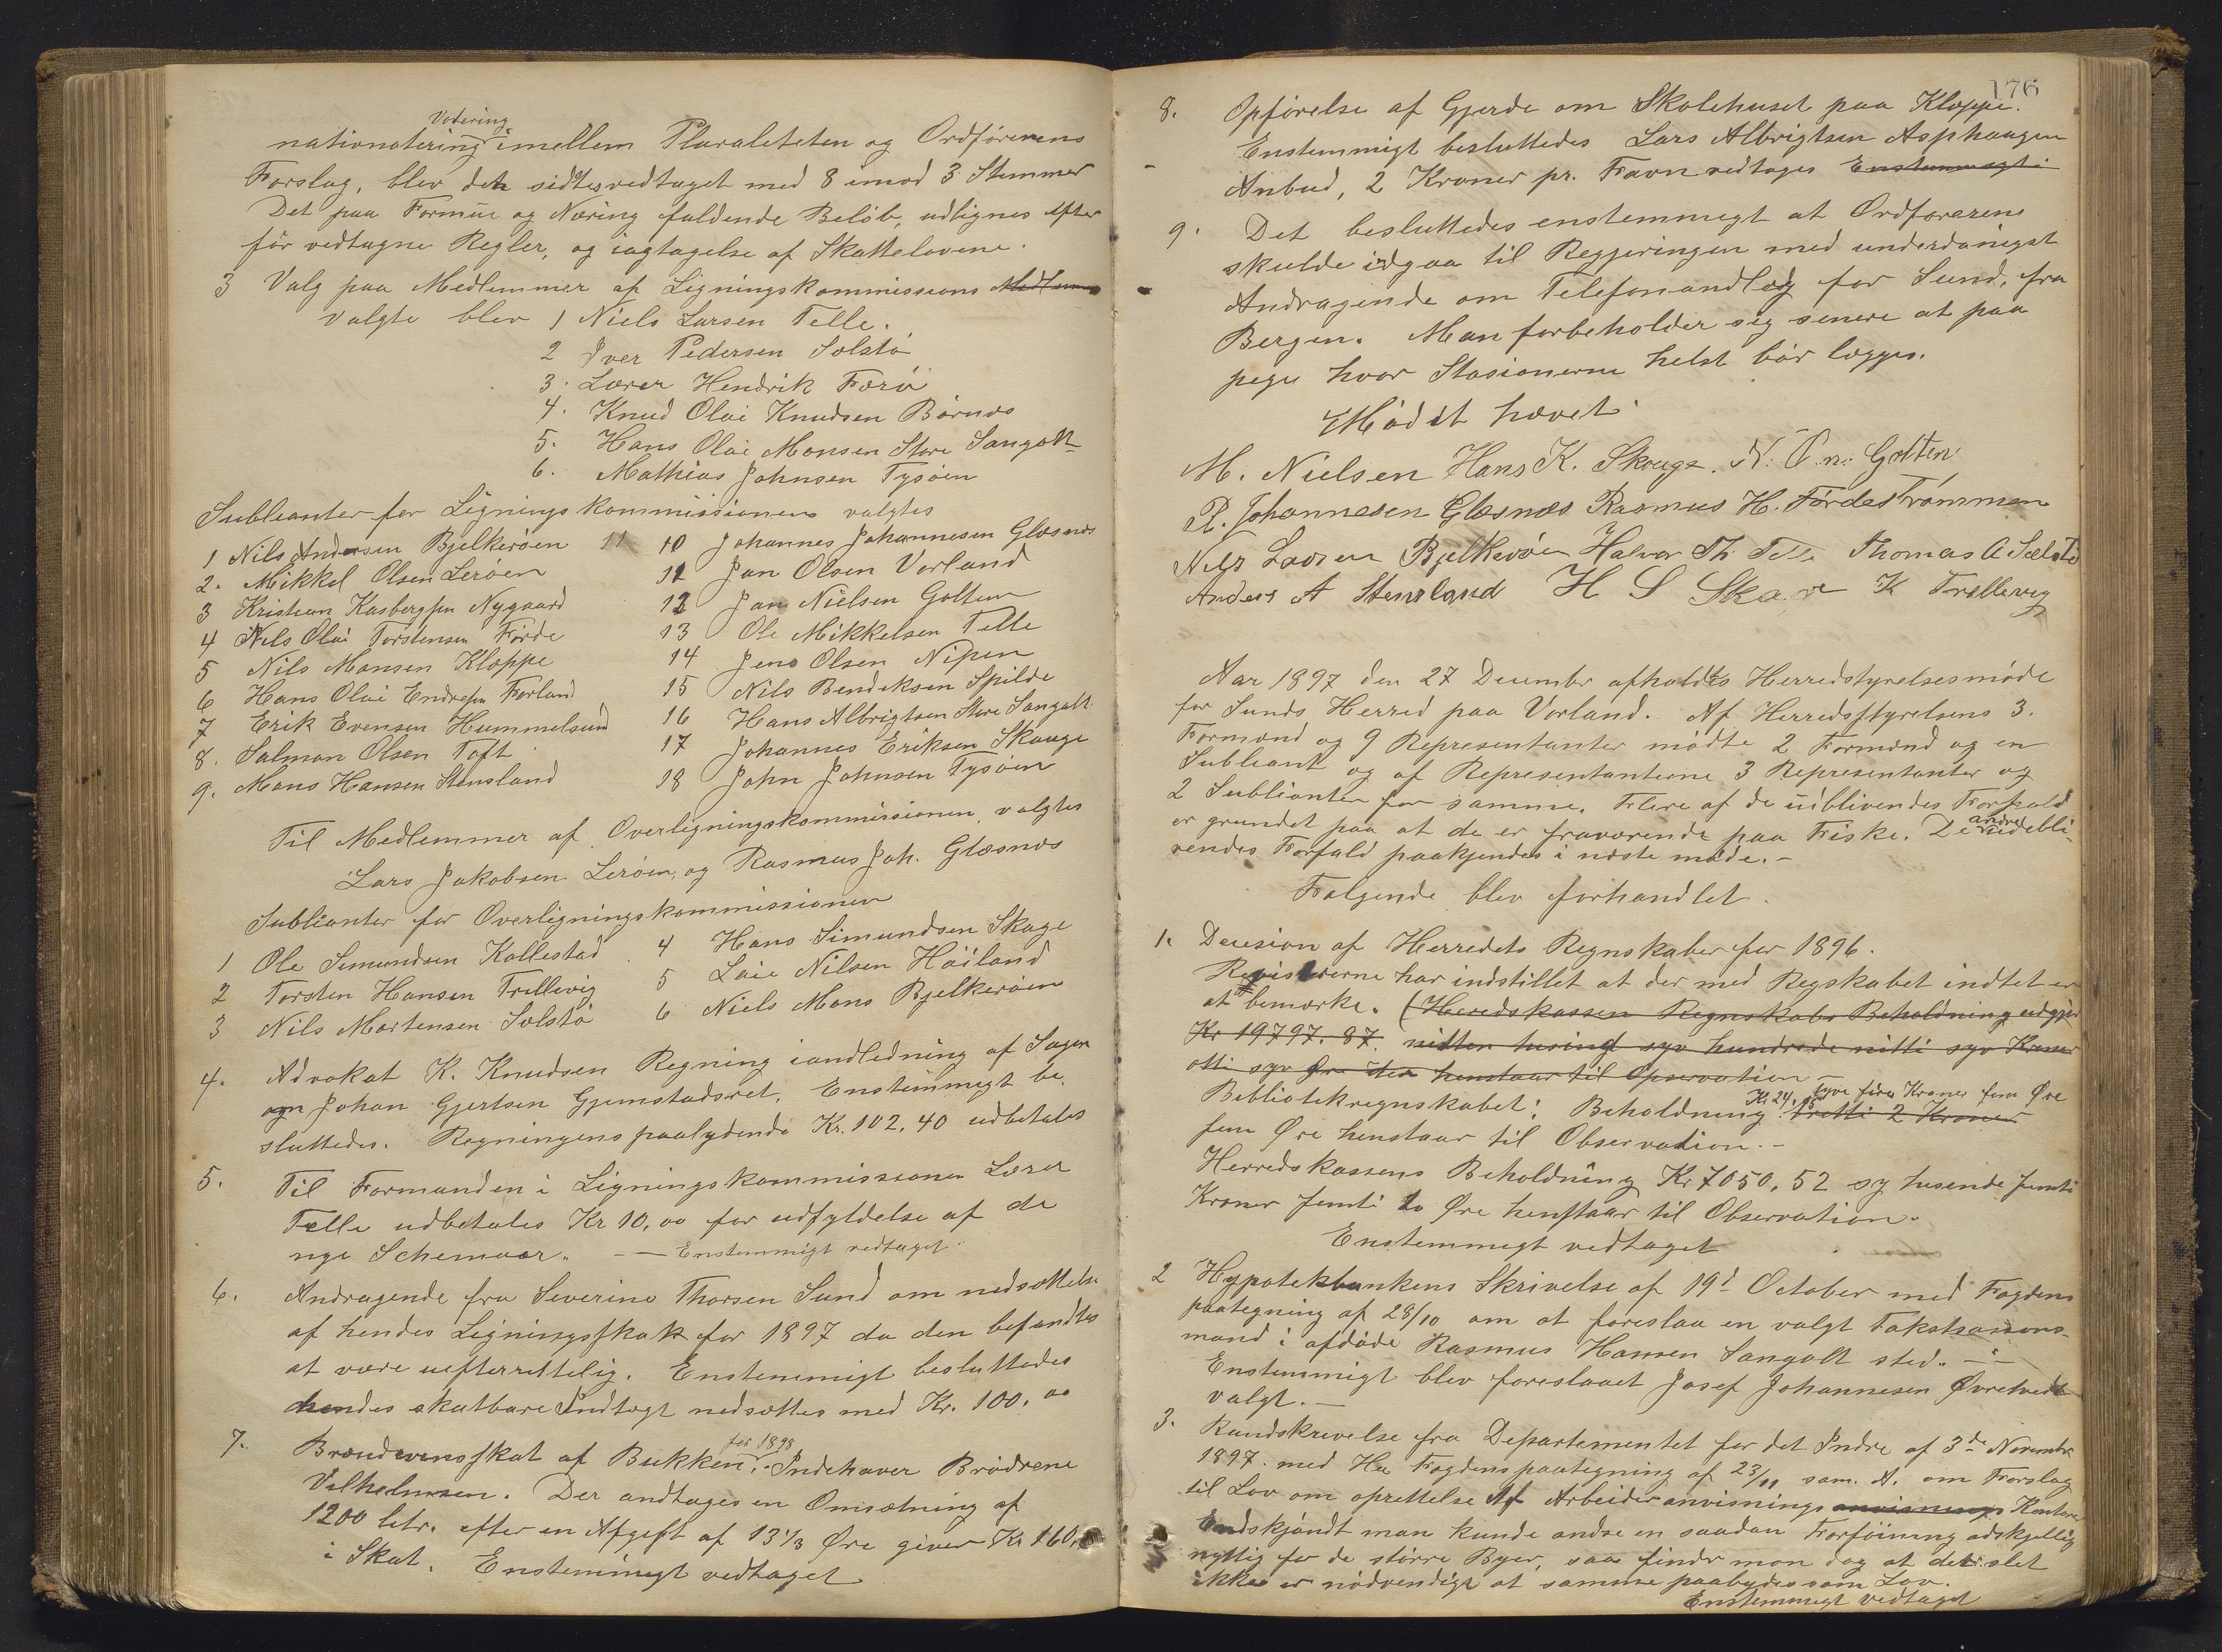 Votering
nationatering imellem Pluraleteten og Ordførerens
Forslag, blev det sidstes vedtaget med 8 imod 3 Stemmer
Det paa Formue og Næring faldende Beløb, udlignes efter
før vedtagne Regler, og iagtagelse af Skattelovene.
3 Valg paa Medlemmer af Ligningskommissions Medlemmer
valgte blev 1 Niels Larsen Telle.
2 Iver Pedersen Solstø
3. Lærer Hendrik Færø
4. Knud Olai Knudsen Børnes
5. Hans Olai Monsen Store Sangolt
6. Mathias Johnsen Tysøen
Subleanter for Lignings kommissionen valgtes
1 Nils Andersen Bjelkerøen 11
2. Mikkel Olsen Lerøen
3 Kristian Kasbergsen Nygaard
4 Nils Olai Torstensen Førde
5 Nils Monsen Kloppe
6 Hans Olai Endresen Forland
7 Erik Evensen Hummelsund
8. Salmon Olsen Toft
9. Mons Hansen Stensland
10 Johannes Johannesen Glæsnes
11 Jan Olsen Vorland
12 Jan Nielsen Golten
13 Ole Mikkelsen Telle
14 Jens Olsen Nipen
15 Nils Bendiksen Spilde
16 Hans Albrigtsen Store Sangolt
17 Johannes Eriksen Skauge
18 John Johnsen Tysøen
Til Medlemmer af Overligningskommissionen valgtes
Lars Jakobsen Lerøen, og Rasmus Joh. Glæsnes
Subleanter for Overligningskommissionen
1 Ole Simundsen Kallestad
2 Torsten Hansen Trellevig
3 Nils Mortensen Solstø
4 Hans Simundsen Skage
5 Laie Nilsen Høiland
6 Niels Mons Bjelkerøen
4. Advokat K. Knudsen Regning iandledning af Sagen
agn Johan Gjertsen Gjemstadsret, Enstemmigt be-
sluttedes. Regningens paalydende Kr. 102,40 udbetales
5. Til Formanden i Ligningskommissionen Lærer
Telle udbetales Kr 10,00 for udfyldelse af de
nye Schemaer. — Enstemmigt vedtaget.
6. Andragende fra Severine Thorsen Sund om nedsættelse
af hendes Ligningsskat for 1897 da den befandtes
at være uefterrettelig. Enstemmigt besluttedes
hendes skatbare Indtægt nedsættes med Kr. 100,00
7. for 1898
Brændevinsskat af Bukken, Indehaver Brødrene
Vilhelmsen. Der andtages en Omsætning af
1200 letr. efter en Afgeft af 13 1/3 Øre giver Kr 160,
i Skat. Enstemmigt vedtaget
176
8. Opførelse af Gjerde om Skolehuset paa Kloppe.
Enstemmigt besluttedes Lars Albrigtsen Asphaugen
Anbud, 2 Kroner pr. Favn vedtages Enstemmegt
9. Det besluttedes enstemmegt at Ordføreren
skulde idgaa til Regjeringen med underdanigst
Andragende om Telefonandlæg for Sund, fra
Bergen. Man forbeholder sig senere at paa
pege hvor Stasionerne helst bør lægges.
Mødet hævet
M. Nielsen Hans K. Skouge. N. O. n. Golten
R. Johannesen Glæsnæs Rasmus H. Førdestrømmen
Nels Larsen Bjelkerøen Halvor Th Telle Thomas A Sælstø
Anders A Stensland H S Skage K Trellevig
Aar 1897 den 27 December afholdtes Herredstyrelsesmøde
for Sunds Herred paa Vorland. Af Herredsstyrelsens 3
Formænd og 9 Representanter mødte 2 Formænd og en
Subleant og af Representanterne 3 Representanter og
2 Subleanter for samme. Flere af de udblivendes Forfald
er grundet paa at de er fraværende paa Fiske. De andre udebli-
vendes Forfald paakjendes i næste møde.-
Følgende blev forhandlet.
1. Decision af Herredets Regnskaber for 1896.
Revisorerne har indstillet at der med Regskabet indtet er
at bemærke. (Heredskassen Regnskabs Beholdning udgjør
Kr 19797.87. nitten tusind syv hundrede nitti syv Kroner
otti syv Øre der henstaar til Opservation —
Bibliotekregnskabet: Beholdning Kr 24,05 tyve fire Kroner fem Øre tretti 2 Kroner
fem Øre henstaar til Observation.-
Herredskassens Beholdning Kr 7050,52 syv tusende femti
Kroner femti to Øre henstaar til Observation.
Enstemmegt vedtaget
2 Hypotekbankens Skrivelse af 19d October med Fogdens
paategning af 28/10 om at foreslaa en valgt Takstsasions-
mand i afdøde Rasmus Hansen Sangolt sted. —
Enstemmigt blev foreslaaet Josef Johannesen Øvretvedt
valgt.—
3. Rundskrivelse fra Departementet for det Indre af 3de November
1897. med Hr Fogdens paategning af 23/11 sam. A. om Forslag
til Lov om oprettelse Af Arbeider anvisnings anvisnings Kontorer
Endskjøndt man kunde andse en saadan Forføining adskjellig
nyttig for de større Byer, saa finder man dog at det slet
ikke er nødvendigt at samme paabydes som Lov.
Enstemmegt vedtaget